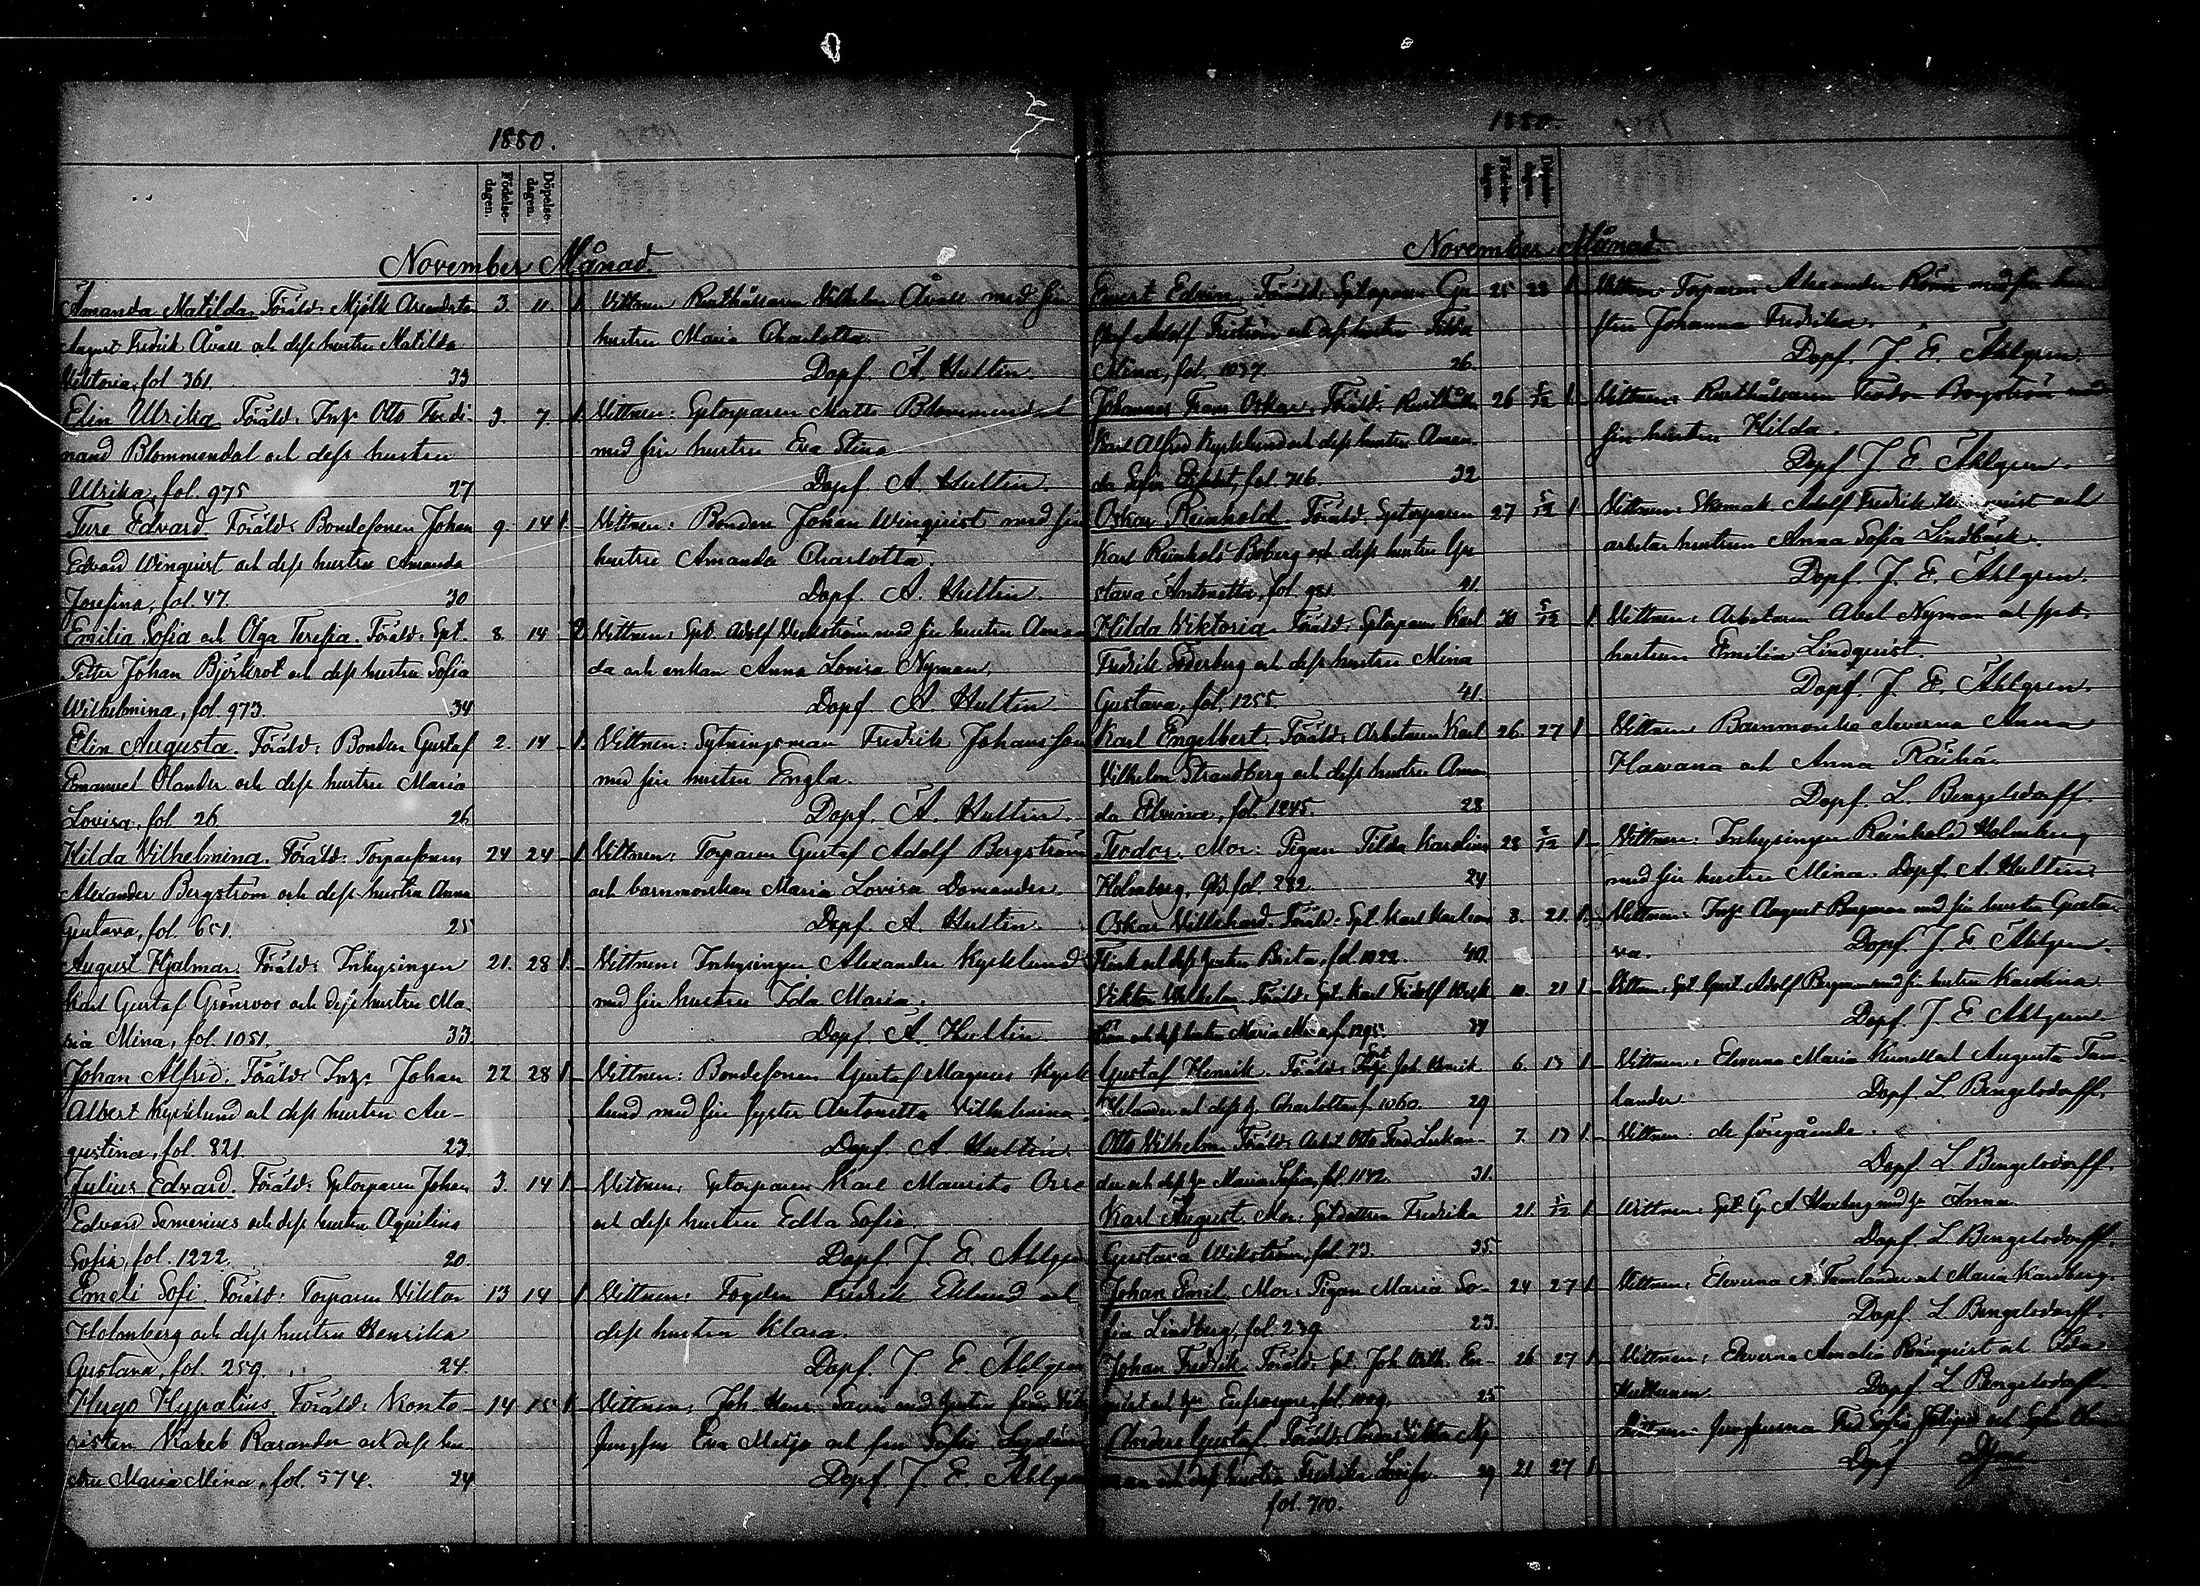 1880.
Födelse-dagen.
Döpelse-dagen.
November Månad.
Amanda Matilda. Föräld: Mjölk Arendato 3. 11. 1. Vittnen Rusthållaren Vilhelm Åvall med sin
August Fredrik Åvall och dess hustru Matilda hustru Maria Charlotta.
Viktoria, fol 361. 33 Döpf. A. Hultin.
Elin Ulrika Föräld. Inhs. Otto Ferdi- 3. 7. 1. Vittnen: Sptorparen Matts Blommendal
nand Blommendal och dess hustru med sin hustru Eva Stina
Ulrika, fol. 975 27 Döpf A. Hultin.
Ture Edvard. Föräld: Bondesonen Johan 9. 14 1. Vittnen: Bonden Johan Winqvist med sin
Edvard Winqvist och dess hustru Amanda hustru Amanda Charlotta.
Josefina, fol. 47. 30 Döpf. A. Hultin.
Emilia Sofia och Olga Teresia. Föräld: Spt. 8. 14 2 Vittnen: Spt. Adolf Weckström med sin hustru Aman
Petter Johan Björkrot och dess hustru Sofia da och enkan Anna Lovisa Nyman.
Wilhelmina, fol. 973. 34 Döpf. A Hultin
Elin Augusta. Föräld: Bonden Gustaf 2. 14 1. Vittnen: Sytningsman Fredrik Johansson
Emanuel Olander och dess hustru Maria med sin hustru Engla.
Lovisa, fol 26 26 Döpf. A. Hultin.
Hilda Vilhelmina. Föräld: Torparsonen 24 24 1 Vittnen: Torparen Gustaf Adolf Bergström
Alexander Bergström och dess hustru Anna och barnmorskan Maria Lovisa Domander.
Gustava, fol. 651. 25 Döpf. A. Hultin.
August Hjalmar. Föräld: Inhysingen 21. 28 1. Vittnen: Inhysingen Alexander Kycklund
Karl Gustaf Grönroos och dess hustru Ma- med sin hustru Ida Maria.
ria Mina, fol. 1051. 33 Döpf. A. Hultin
Johan Alfred. Föräld: Inhs. Johan 22 28 1. Vittnen: Bondesonen Gustaf Magnus Kyck
Albert Kycklund och dess hustru Au- lund med sin syster Antonetta Vilhelmina.
gustina, fol. 821. 23 Döpf. A Hultin.
Julius Edvard. Föräld: Sptorparen Johan 3. 14 1. Vittnen: Sptorparen Karl Maurits
Edvard Semenius och dess hustru Aquilina och dess hustru Edla Sofia.
Sofia, fol. 1222. 20. Döpf. J. E. Ahlgren
Emeli Sofi. Föräld: Torparen Viktor 13 14 1 Vittnen: Fogden Fredrik Eklund och
Holmberg och dess hustru Henrika dess hustru Klara.
Gustava, fol. 259. 24. Döpf. J. E. Ahlgren
Hugo Hypatius. Föräld: Konto- 14 15 1 Vittnen: Joh. Henr.
risten Jakob Rasander och dess hu- Jungfru Eva och fru Sofie
stru Maria Mina, fol. 574. 24 Döpf. J. E. Ahlgren
1880.
Födelse-dagen.
Döpelse-dagen.
November Månad.
Ernst Edvin. Föräld: Sptorparen Gu 25 28 1 Vittnen Torparen Alexander Rönn med sin hu
staf Adolf Fristrom och dess hustru Tilda stru Johanna Fredrika.
Mina, fol. 1037. 26. Döpf. J. E. Ahlgren.
Johannes Frans Oskar. Föräld: Rusthållar 26 5/12 1 Vittnen: Rusthållaren Feodor Bergström med
Karl Alfred Kycklund och dess hustru Aman- sin hustru Hilda.
da Sofia fol. 716. 32 Döpf J. E. Ahlgren.
Oskar Reinhold. Föräld: Sptorparen 27 5/12 1 Vittnen: Skomak Adolf Fredrik och
Karl Reinhold Boberg och dess hustru Gu arbetar hustrun Anna Sofia Lindbäck.
stava Antonetta, fol 981. 41. Döpf. J. E. Ahlgren.
Hilda Viktoria. Föräld: Sptorparen Karl 30 5/12 1 Vittnen: Arbetaren Abel Nyman och spt.
Fredrik Söderberg och dess hustru Mina hustrun Emilia Lindqvist.
Gustava, fol. 1255. 41. Döpf. J. E. Ahlgren.
Karl Engelbert. Föräld: Arbetaren Karl 26. 27 1 Vittnen: Barnmorske eleverna Anna
Vilhelm Strandberg och dess hustru Aman Hawana och Anna Räihä
da Elvina, fol. 1245. 28 Döpf. L. Bengelsdorff.
Feodor. Mor: Pigan Tilda Karolina 28 1 Vittnen: Inhysingen Reinhold Holmberg
Holmberg, fol. 282. 24 med sin hustru Mina. Döpf. A. Hultin.
Oskar Villehard. Föräld: Spt. Karl Karlsson 8. 21. 1. Vittnen: Inhs. August Bergman med sin hustru Gusta-
och dess hustru Brita, fol 1022. 40. va. Döpf. J. E Ahlgren
Viktor Wilhelm. Föräld: Spt. Karl Fridolf 10. 21 1 Vittnen: Spt. Gust. Adolf Bergman med sin hustru Karolina
ström och dess hustru Maria Mina, f. 1295. 34 Döpf. J. E Ahlgren.
Gustaf Henrik. Föräld: Joh. Henrik 6. 13 1 Vittnen: Eleverna Maria och Augusta Tam-
Helander och dess h. Charlotta f. 1060. 29 lander Döpf. L Bengelsdorff.
Otto Vilhelm. Föräld: Arbet. Otto Ferd. Lukan- 7. 13 1 Vittnen: de föregående.
der och dess h. Maria Sofia, fol. 1142. 31. Döpf. L Bengelsdorff.
Karl August. Mor: Sptdottren Fredrika 21. 1 Vittnen: Spt. G. A. med h. Anna
Gustava Wikström, fol. 73. 35 Döpf. L Bengelsdorff.
Johan Emil. Mor: Pigan Maria So- 24 27 1 Vittnen: Eleverna A. Tamlander och Maria
fia Lindberg, fol. 239 23. Döpf. L Bengelsdorff.
Johan Fredrik. Föräld: Spt. Joh. Wilh. En- 26 27 1 Vittnen: Eleverna Amalia Rönqvist och
qvist och h. Eufrosyne, fol. 1009. 25 Döpf. L Bengelsdorff
Anders Gustaf. Föräld: Anders Viktor Ny
man och dess hustru Fredrika Lovisa 29 21 27 1 Döpf
fol. 700.